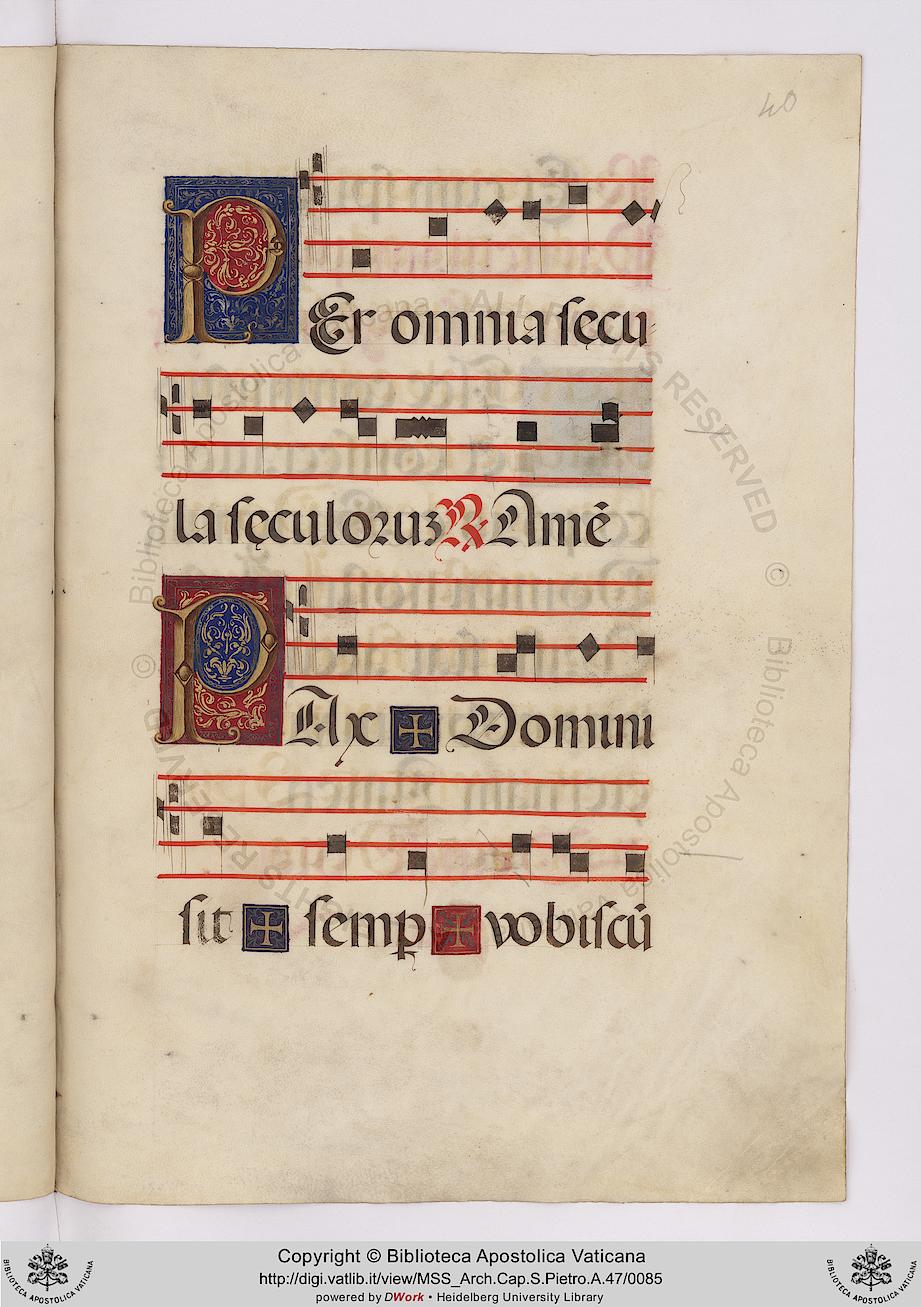 40
PEr omnia sęcu-
la sęculoruꝫ ℟ Amē
PAx ✠ Domini
sit ✠ semꝑ ✠ vobiscū
© Biblioteca Apostolica Vaticana ALL RIGHTS RESERVED
© Biblioteca Apostolica Vaticana ALL RIGHTS RESERVED
BIBLIOTECA APOSTOLICA VATICANA
Copyright © Biblioteca Apostolica Vaticana
http://digi.vatlib.it/view/MSS_Arch.Cap.S.Pietro.A.47/0085
powered by DWork • Heidelberg University Library
BIBLIOTECA APOSTOLICA VATICANA